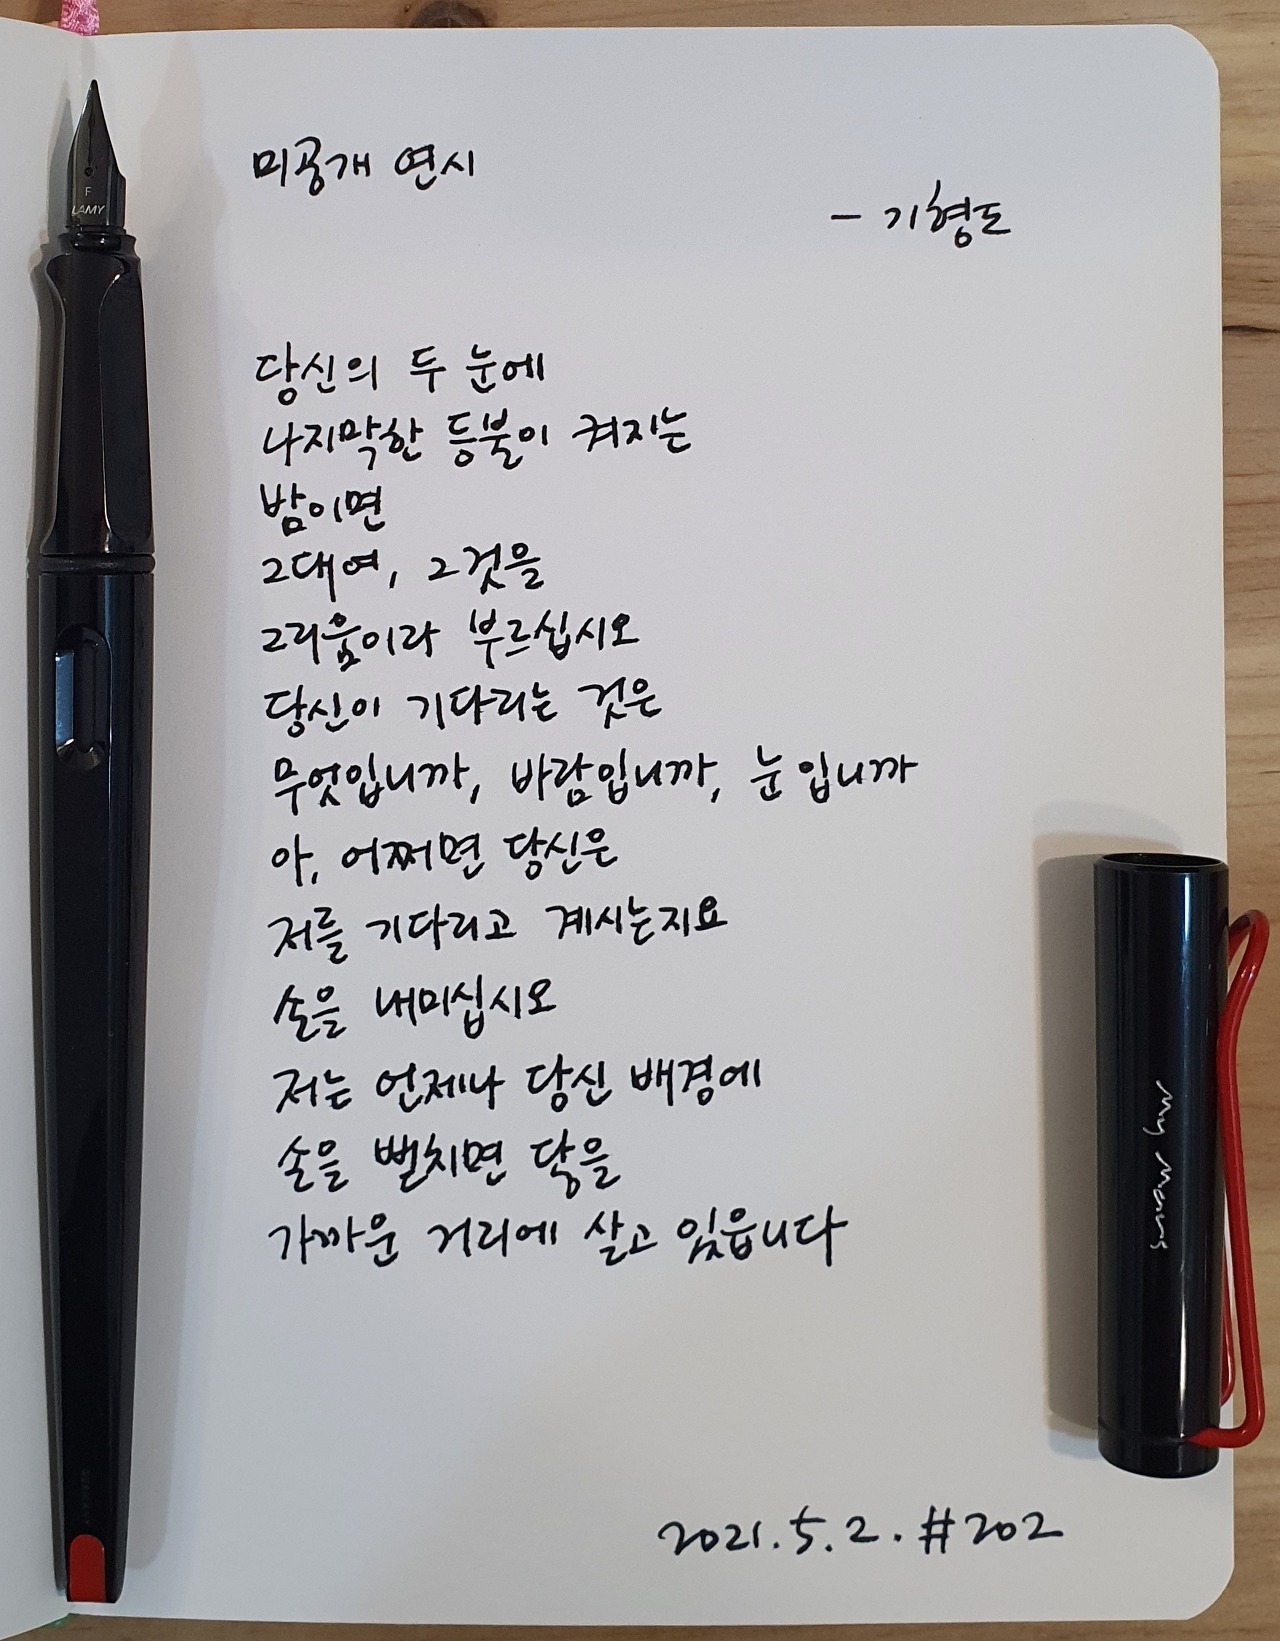 미공개 연시
- 기형도
당신의 두 눈에
나지막한 등불이 켜지는
밤이면
그대여, 그것을
그리움이라 부르십시오
당신이 기다리는 것은
무엇입니까, 바람입니까, 눈입니까
아, 어쩌면 당신은
저를 기다리고 계시는지요
손을 내미십시오
저는 언제나 당신 배경에
손을 뻗치면 닿을
가까운 거리에 살고 있읍니다
2021.5.2. #202
F
LAMY